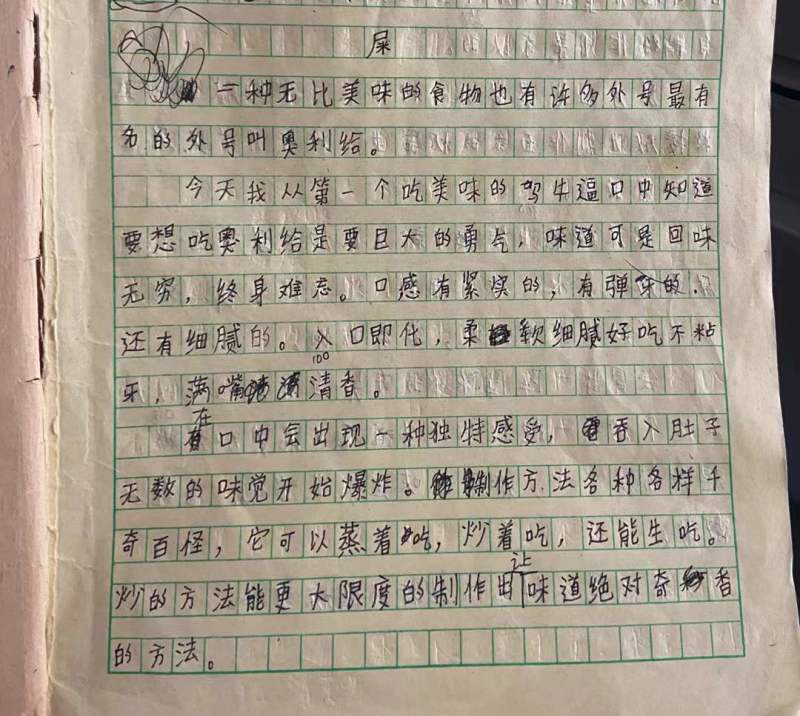 屎
一种无比美味的食物也有许多外号最有
名的外号叫奥利给。
今天我从第一个吃美味的驾牛逼口中知道
要想吃奥利给是要巨大的勇气，味道可是回味
无穷，终身难忘。口感有紧实的，有弹牙的.
还有细腻的。入口即化，柔软细腻好吃不粘
100
牙，满嘴清香。
在口中会出现一种独特感受，吞入肚子
无数的味觉开始爆炸。制作方法各种各样千
奇百怪，它可以蒸着吃，炒着吃，还能生吃。
炒的方法能更大限度的制作出让味道绝对奇香
的方法。